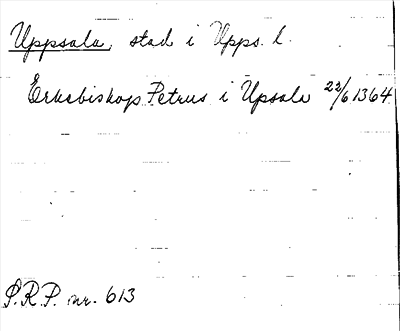 Uppsala, stad i Upps. l.
Ärkebiskop Petrus i Upsala 22/6 1364
S.R.P. nr. 613